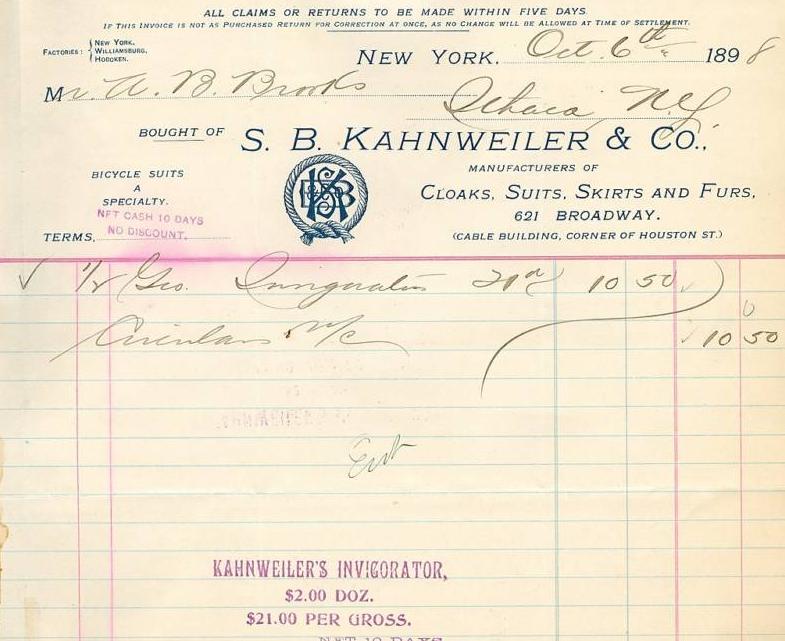 ALL CLAIMS OR RETURNS TO BE MADE WITHIN FIVE DAYS.
IF THIS INVOICE IS NOT AS PURCHASED RETURN FOR CORRECTION AT ONCE, AS NO CHANGE WILL BE ALLOWED AT TIME OF SETTLEMENT.
FACTORIES: NEW YORK, WILLIAMSBURG, HOBOKEN.
NEW YORK, Oct. 6th 1898
Mr. A. B. Brooks
Ithaca, N.Y.
BOUGHT OF S. B. KAHNWEILER & CO.,
MANUFACTURERS OF
CLOAKS, SUITS, SKIRTS AND FURS,
621 BROADWAY.
(CABLE BUILDING, CORNER OF HOUSTON ST.)
BICYCLE SUITS
A
SPECIALTY.
NET CASH 10 DAYS
NO DISCOUNT.
TERMS,
1/2 Gro. Invigorator 21 10 50
Circulars N/C 10 50
KAHNWEILER'S INVIGORATOR,
$2.00 DOZ.
$21.00 PER GROSS.
NET 10 DAYS